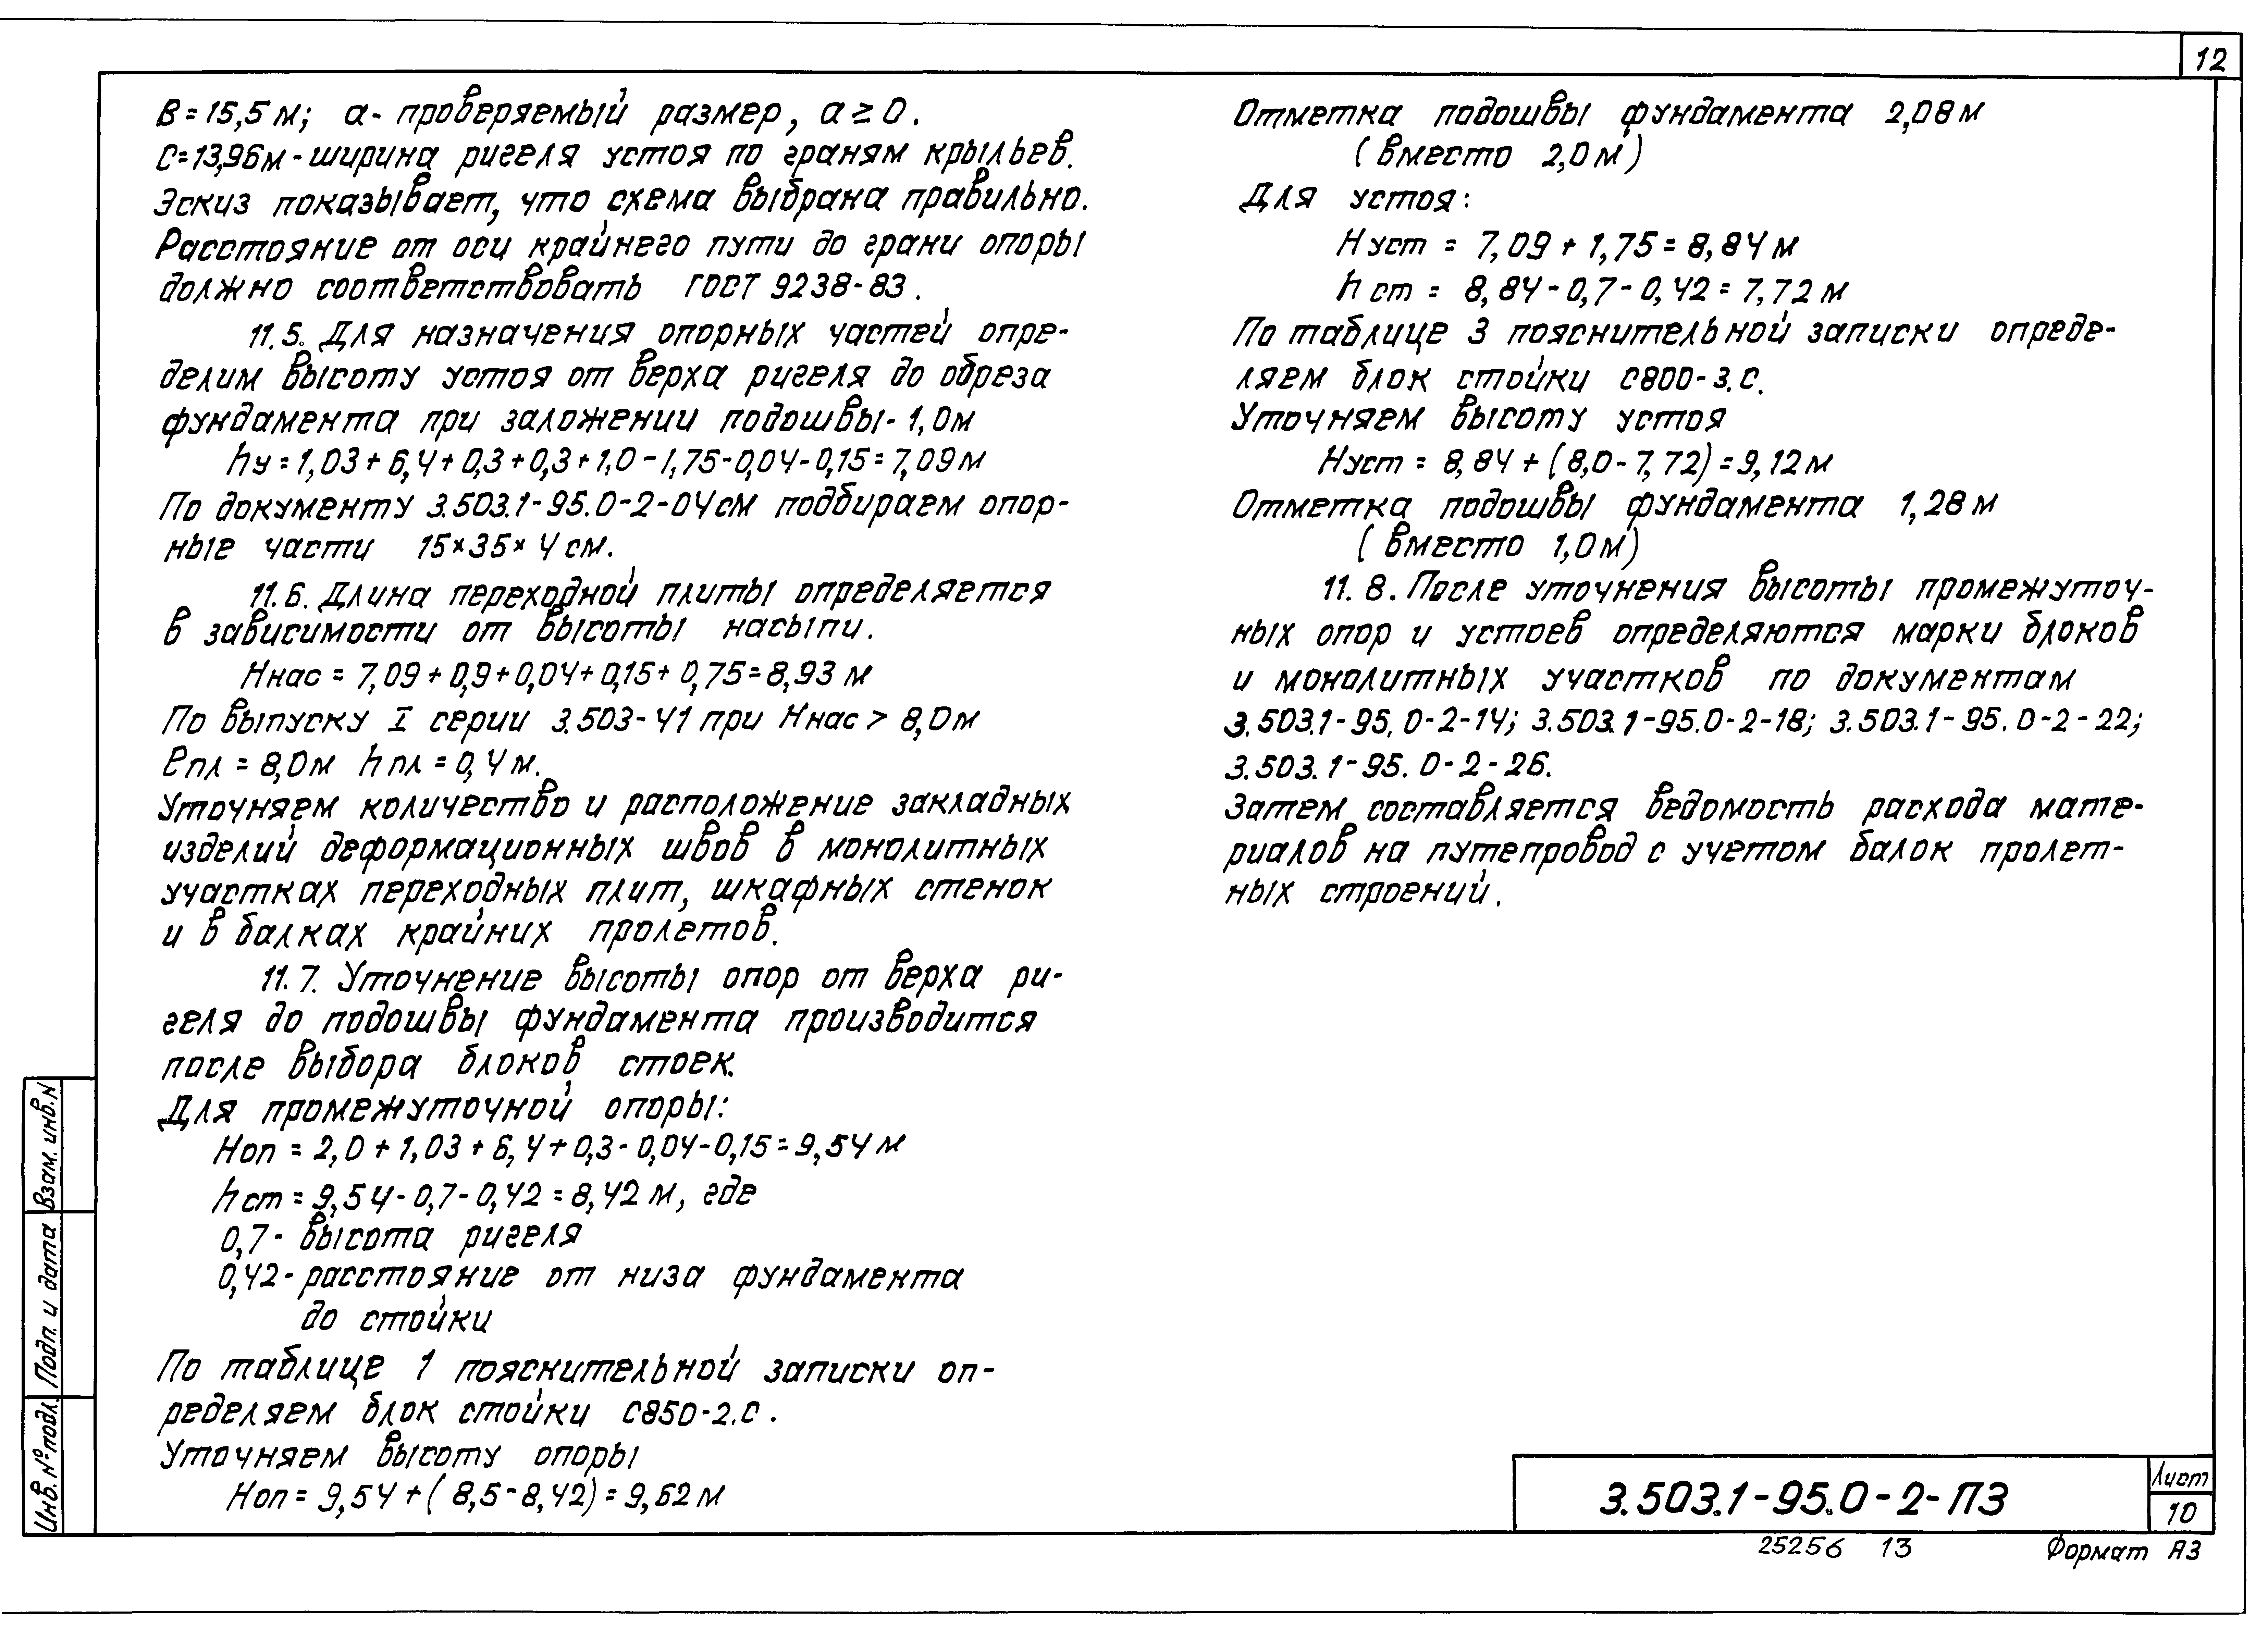 12
В=15,5м; а- проверяемый размер, а ≥ 0.
С=13,96м - ширина ригеля устоя по граням крыльев.
Эскиз показывает, что схема выбрана правильно.
Расстояние от оси крайнего пути до грани опоры
должно соответствовать ГОСТ 9238-83.
11.5. Для назначения опорных частей опре-
делим высоту устоя от верха ригеля до обреза
фундамента при заложении подошвы - 1,0м
hу = 1,03 + 6,4 + 0,3 + 0,3 + 1,0 - 1,75 - 0,04 - 0,15 = 7,09м
По документу 3.503.1-95.0-2-04СМ подбираем опор-
ные части 15×35×4 см.
11.6. Длина переходной плиты определяется
в зависимости от высоты насыпи.
Ннас = 7,09 + 0,9 + 0,04 + 0,15 + 0,75 = 8,93 м
По выпуску I серии 3.503-41 при Ннас > 8,0м
ℓпл = 8,0м hпл = 0,4м.
Уточняем количество и расположение закладных
изделий деформационных швов в монолитных
участках переходных плит, шкафных стенок
и в балках крайних пролетов.
11.7. Уточнение высоты опор от верха ри-
геля до подошвы фундамента производится
после выбора блоков стоек.
Для промежуточной опоры:
Ноп = 2,0 + 1,03 + 6,4 + 0,3 - 0,04 - 0,15 = 9,54 м
hст = 9,54 - 0,7 - 0,42 = 8,42 м, где
0,7 - высота ригеля
0,42 - расстояние от низа фундамента
до стойки
По таблице 1 пояснительной записки оп-
ределяем блок стойки С850-2.С.
Уточняем высоту опоры
Ноп = 9,54 + (8,5 - 8,42) = 9,62 м
Отметка подошвы фундамента 2,08м
(вместо 2,0м)
Для устоя:
Нуст = 7,09 + 1,75 = 8,84 м
hст = 8,84 - 0,7 - 0,42 = 7,72 м
По таблице 3 пояснительной записки опреде-
ляем блок стойки С800-3.С.
Уточняем высоту устоя
Нуст = 8,84 + (8,0 - 7,72) = 9,12м
Отметка подошвы фундамента 1,28м
(вместо 1,0м)
11.8. После уточнения высоты промежуточ-
ных опор и устоев определяются марки блоков
и монолитных участков по документам
3.503.1-95.0-2-14; 3.503.1-95.0-2-18; 3.503.1-95.0-2-22;
3.503.1-95.0-2-26.
Затем составляется ведомость расхода мате-
риалов на путепровод с учетом балок пролет-
ных строений.
Взам. инв. N
Подп. и дата
Инв. N° подл.
3.503.1-95.0-2-ПЗ
Лист
10
25256 13
Формат А3